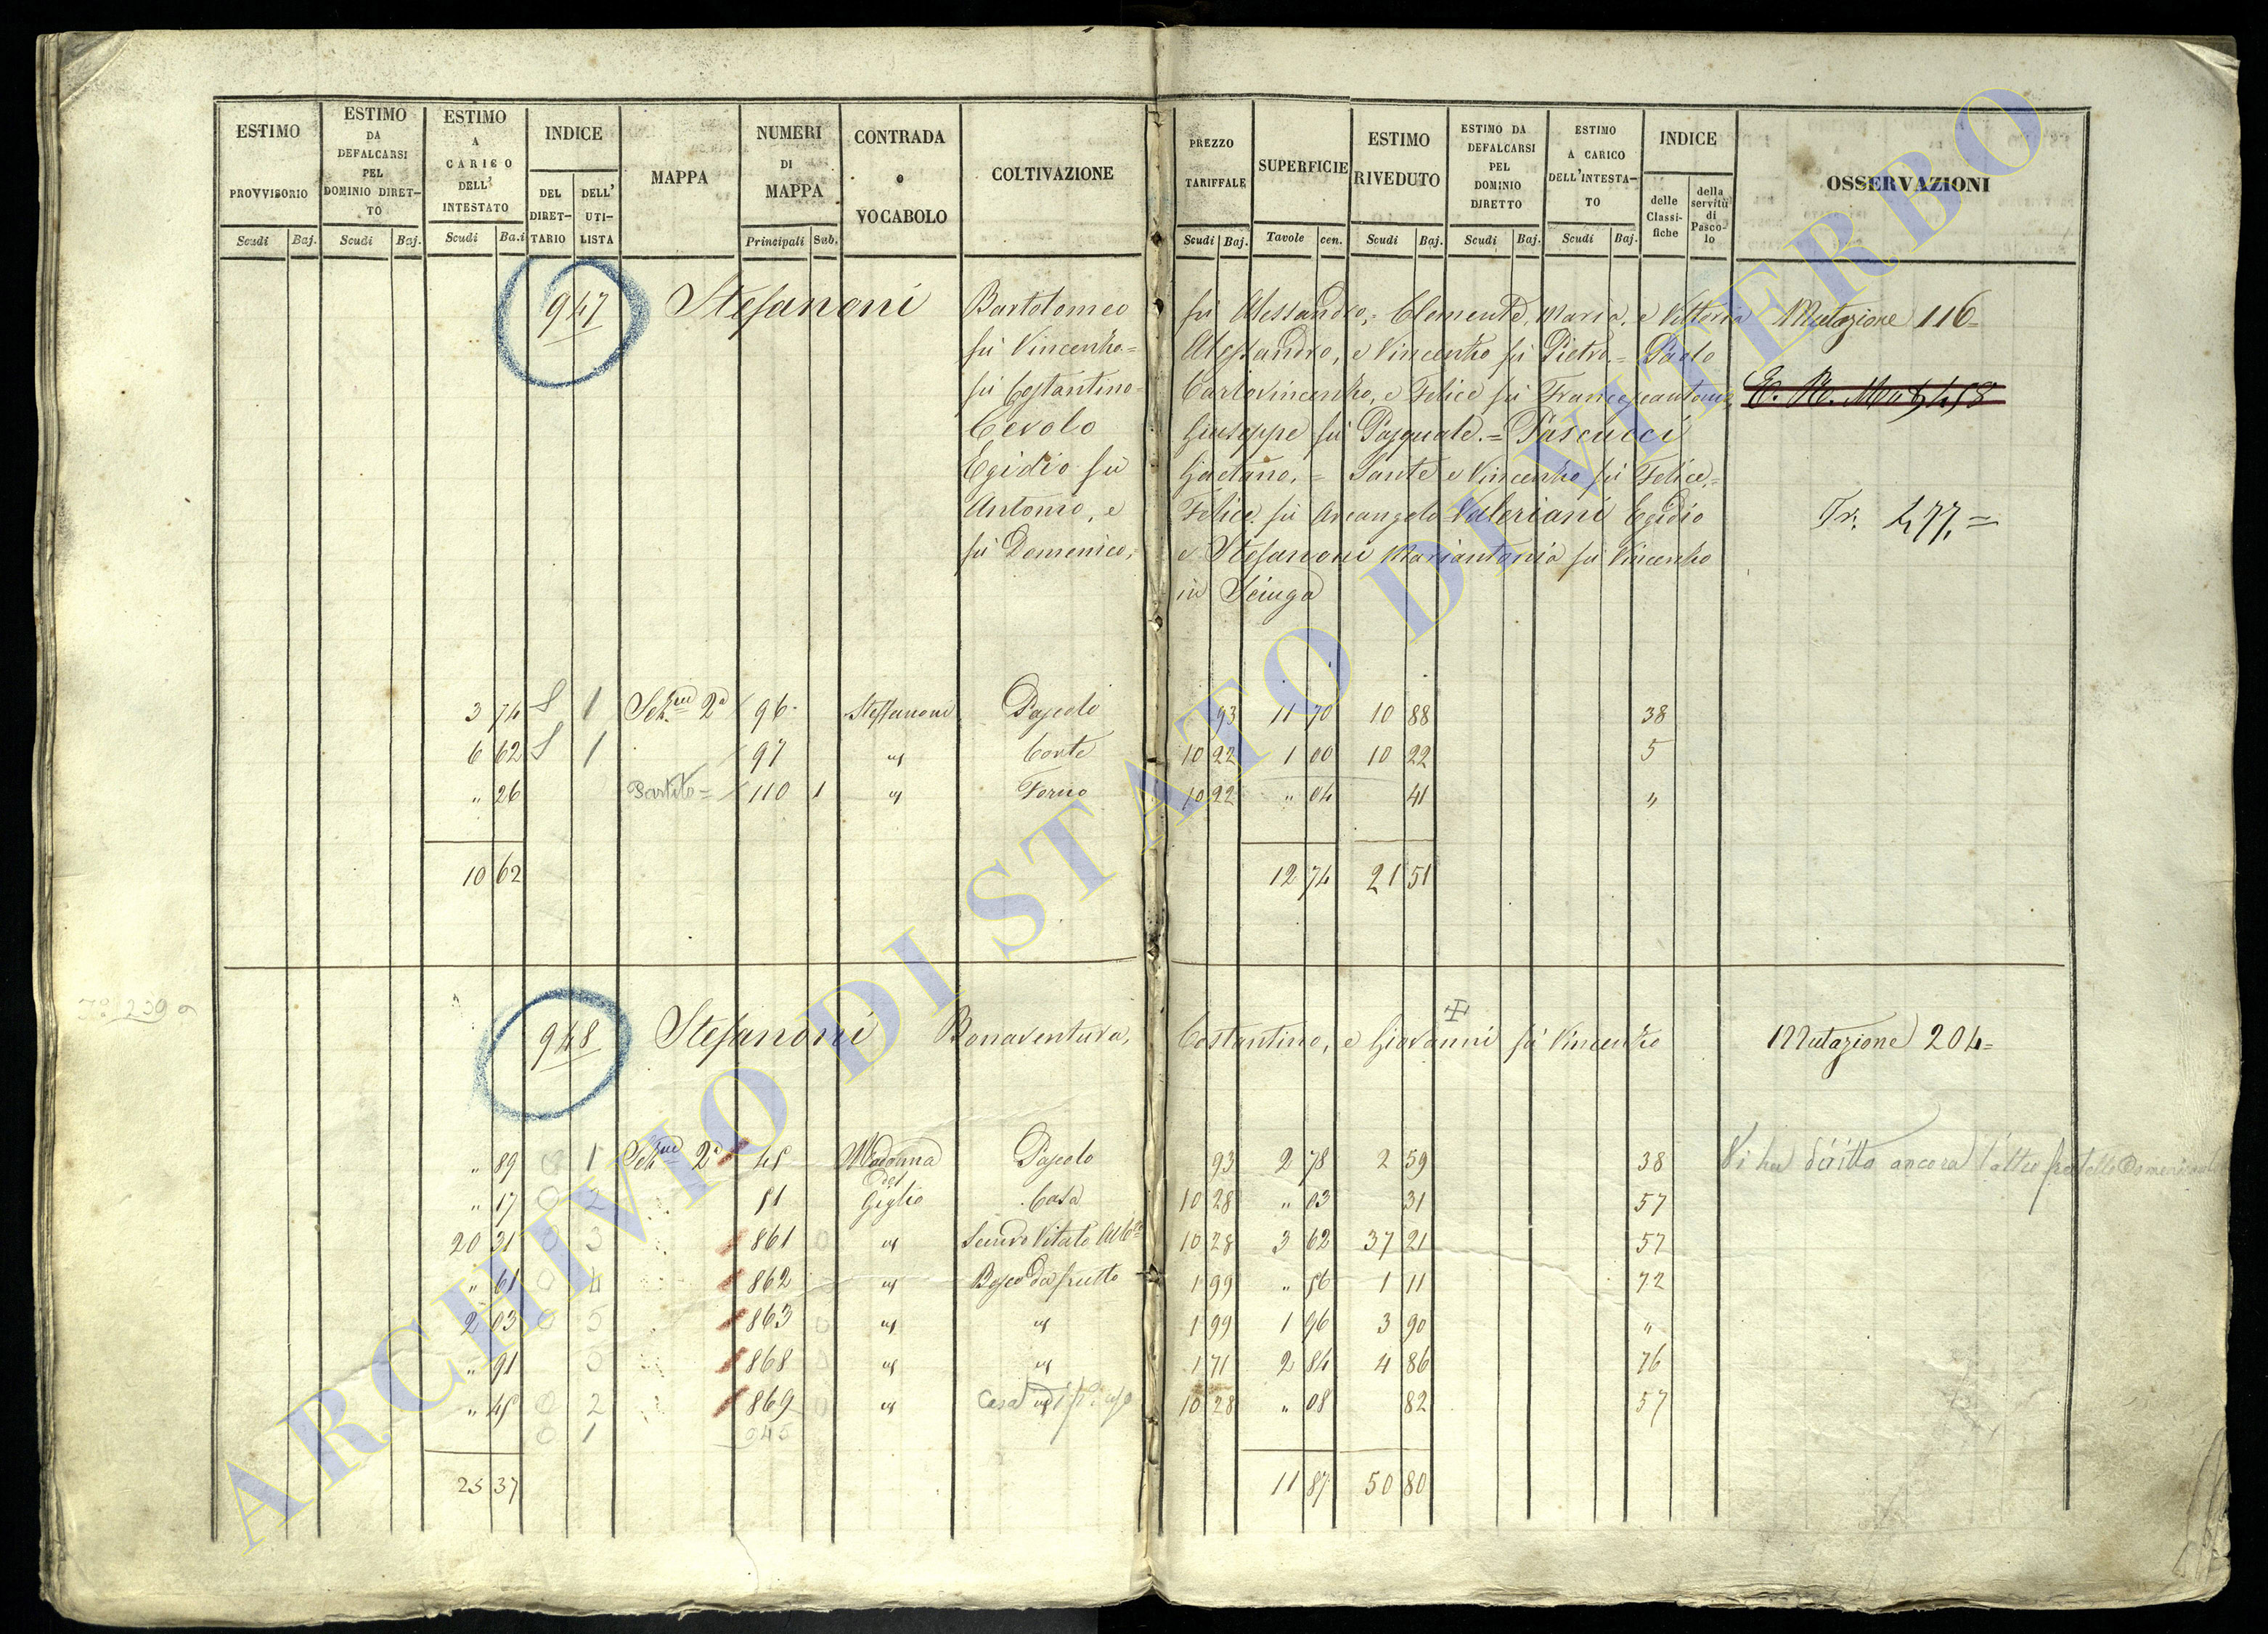 ESTIMO PROVVISORIO
Scudi Baj.
ESTIMO DA DEFALCARSI PEL DOMINIO DIRETTO
Scudi Baj.
ESTIMO A CARICO DELL' INTESTATO
Scudi Ba.i
INDICE
DEL DIRETTARIO
DELL' UTILISTA
MAPPA
NUMERI DI MAPPA
Principali Sub.
CONTRADA o VOCABOLO
COLTIVAZIONE
PREZZO TARIFFALE
Scudi Baj.
SUPERFICIE
Tavole cen.
ESTIMO RIVEDUTO
Scudi Baj.
ESTIMO DA DEFALCARSI PEL DOMINIO DIRETTO
Scudi Baj.
ESTIMO A CARICO DELL'INTESTATO
Scudi Baj.
INDICE
delle Classifiche
della servitù di Pascolo
OSSERVAZIONI
947 Stefanoni Bartolomeo fù Alessandro,= Clemente, Maria, e Vittoria Mutazione 116=
fù Vincenzo= Alessandro, e Vincenzo fù Pietro.= Paolo
fù Costantino= Carlovincenzo, e Felice fù Francescantonio,
Cevolo Giuseppe fù Pasquale.= Pascucci
Egidio fù Gaetano,= Sante e Vincenzo fù Felice,=
Antonio, e Felice fù Arcangelo Valeriani Egidio Tr. 477.=
fù Domenico, e Stefanoni Mariantonia fù Vincenzo
in Sciuga
3 74 S 1 Sez.ne 2a 96 Steffanoni Pascolo 93 11 70 10 88 38
6 62 S 1 97 " Corte 10 22 1 00 10 22 5
" 26 Partito= 110 1 " Forno 10 22 " 04 41 "
10 62 12 74 21 51
948 Stefanoni Bonaventura, Costantino, e Giovanni fù Vincenzo Mutazione 204=
" 89 1 Sez.ne 2a 45 Madonna del Giglio Pascolo 93 2 78 2 59 38 Vi ha diritto ancora l'altro fratello
" 17 0 2 51 Casa 10 28 " 03 31 57
20 31 0 3 861 0 " Semvo Vitato Alb.to 10 28 3 62 37 21 57
" 61 0 4 862 " Bosco da frutto 1 99 " 56 1 11 72
2 03 0 5 863 0 " " 1 99 1 96 3 90 "
" 91 868 " " 1 71 2 84 4 86 76
" 45 0 2 869 0 " Casa 10 28 " 08 82 57
0 1 945
25 37 11 87 50 80
ARCHIVIO DI STATO DI VITERBO